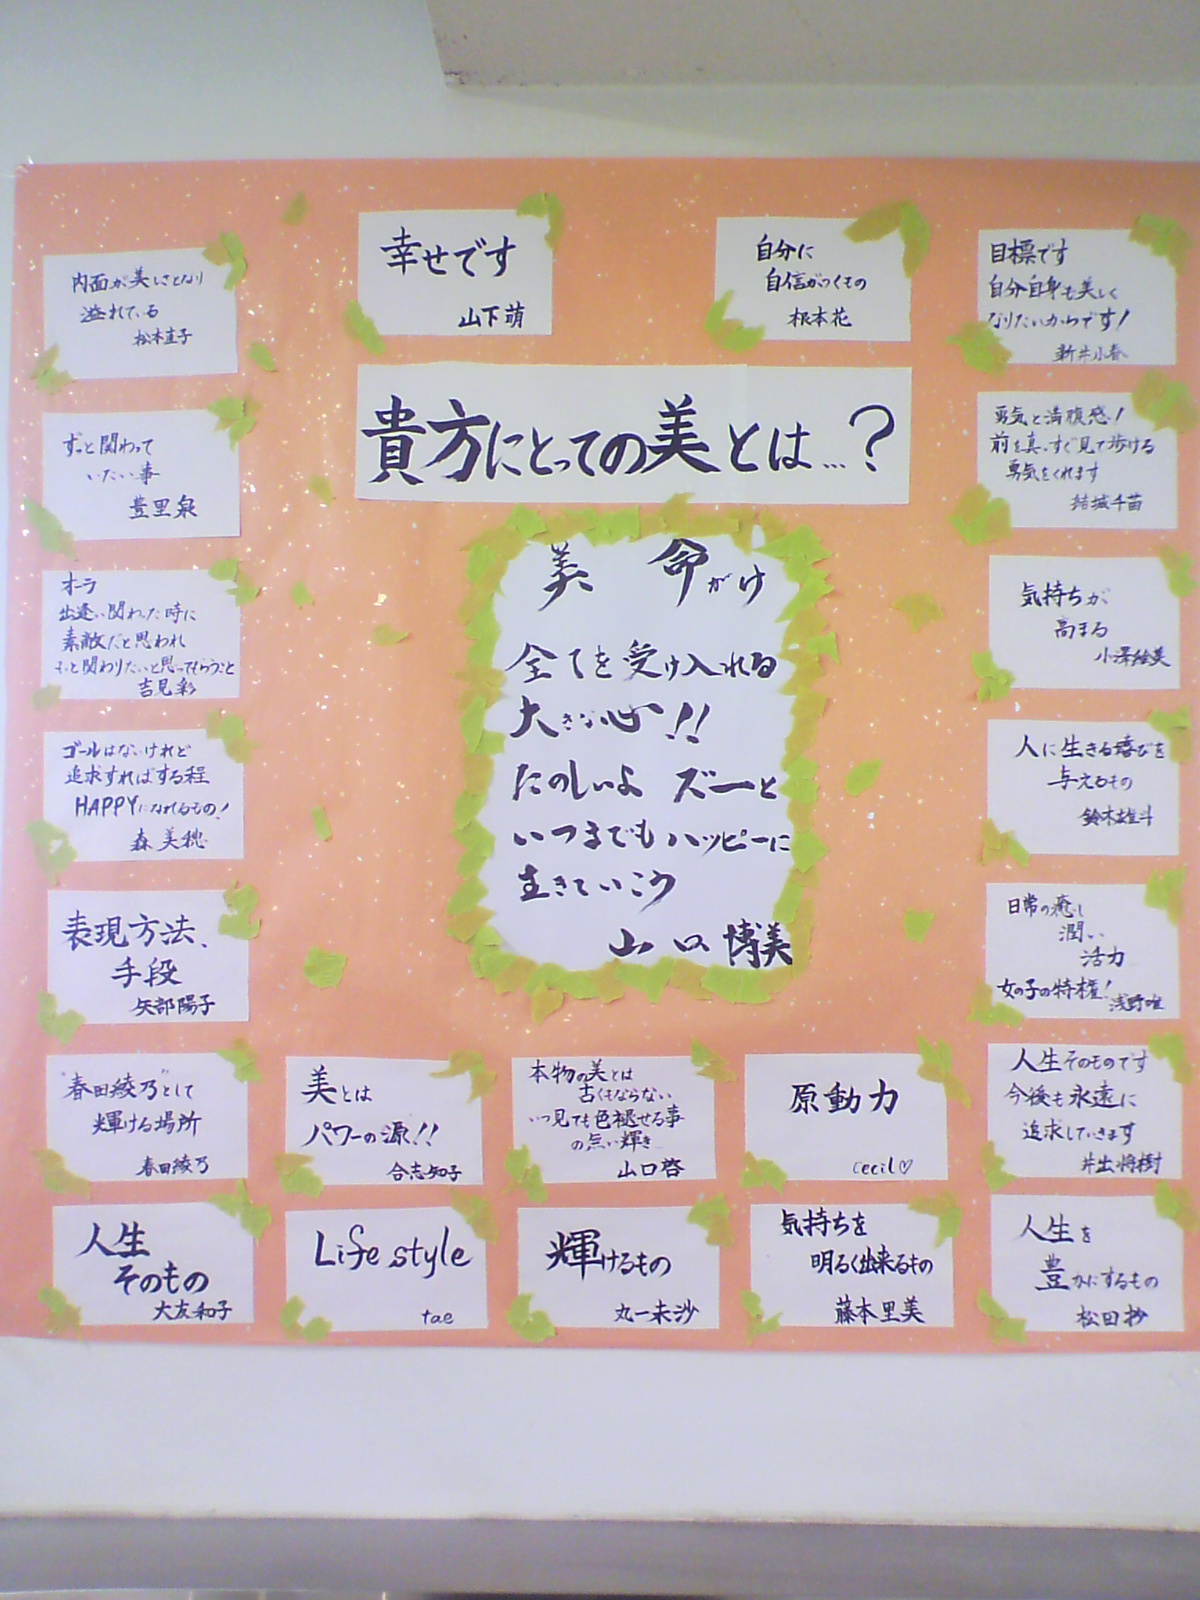 幸せです
山下萌
自分に
自信がつくもの
根本花
目標です
自分自身も美しく
なりたいからです!
新井小春
内面が美しさとなり
溢れている
松本直子
貴方にとっての美とは…?
ずっと関わって
いたい事
豊里泉
勇気と満腹感!
前を真っすぐ見て歩ける
勇気をくれます
結城千苗
美 命がけ
全てを受け入れる
大きな心!!
たのしいよ ズーと
いつまでもハッピーに
生きていこう
山口博美
オーラ
出逢い関わった時に
素敵だと思われ
もっと関わりたいと思ってもらうこと
吉見彩
気持ちが
高まる
小澤絵美
ゴールはないけれど
追求すればする程
HAPPYになれるもの!
森美穂
人に生きる喜びを
与えるもの
鈴木雄斗
表現方法、
手段
矢部陽子
日常の癒し
潤い
活力
女の子の特権!
浅野唯
"春田綾乃"として
輝ける場所
春田綾乃
美とは
パワーの源!!
合志知子
本物の美とは
古くもならない
いつ見ても色褪せる事
の無い輝き
山口啓
原動力
cecil♡
人生そのものです
今後も永遠に
追求していきます
井出将樹
人生
そのもの
大友和子
Life style
tae
輝けるもの
丸一未沙
気持ちを
明るく出来るもの
藤本里美
人生を
豊かにするもの
松田抄